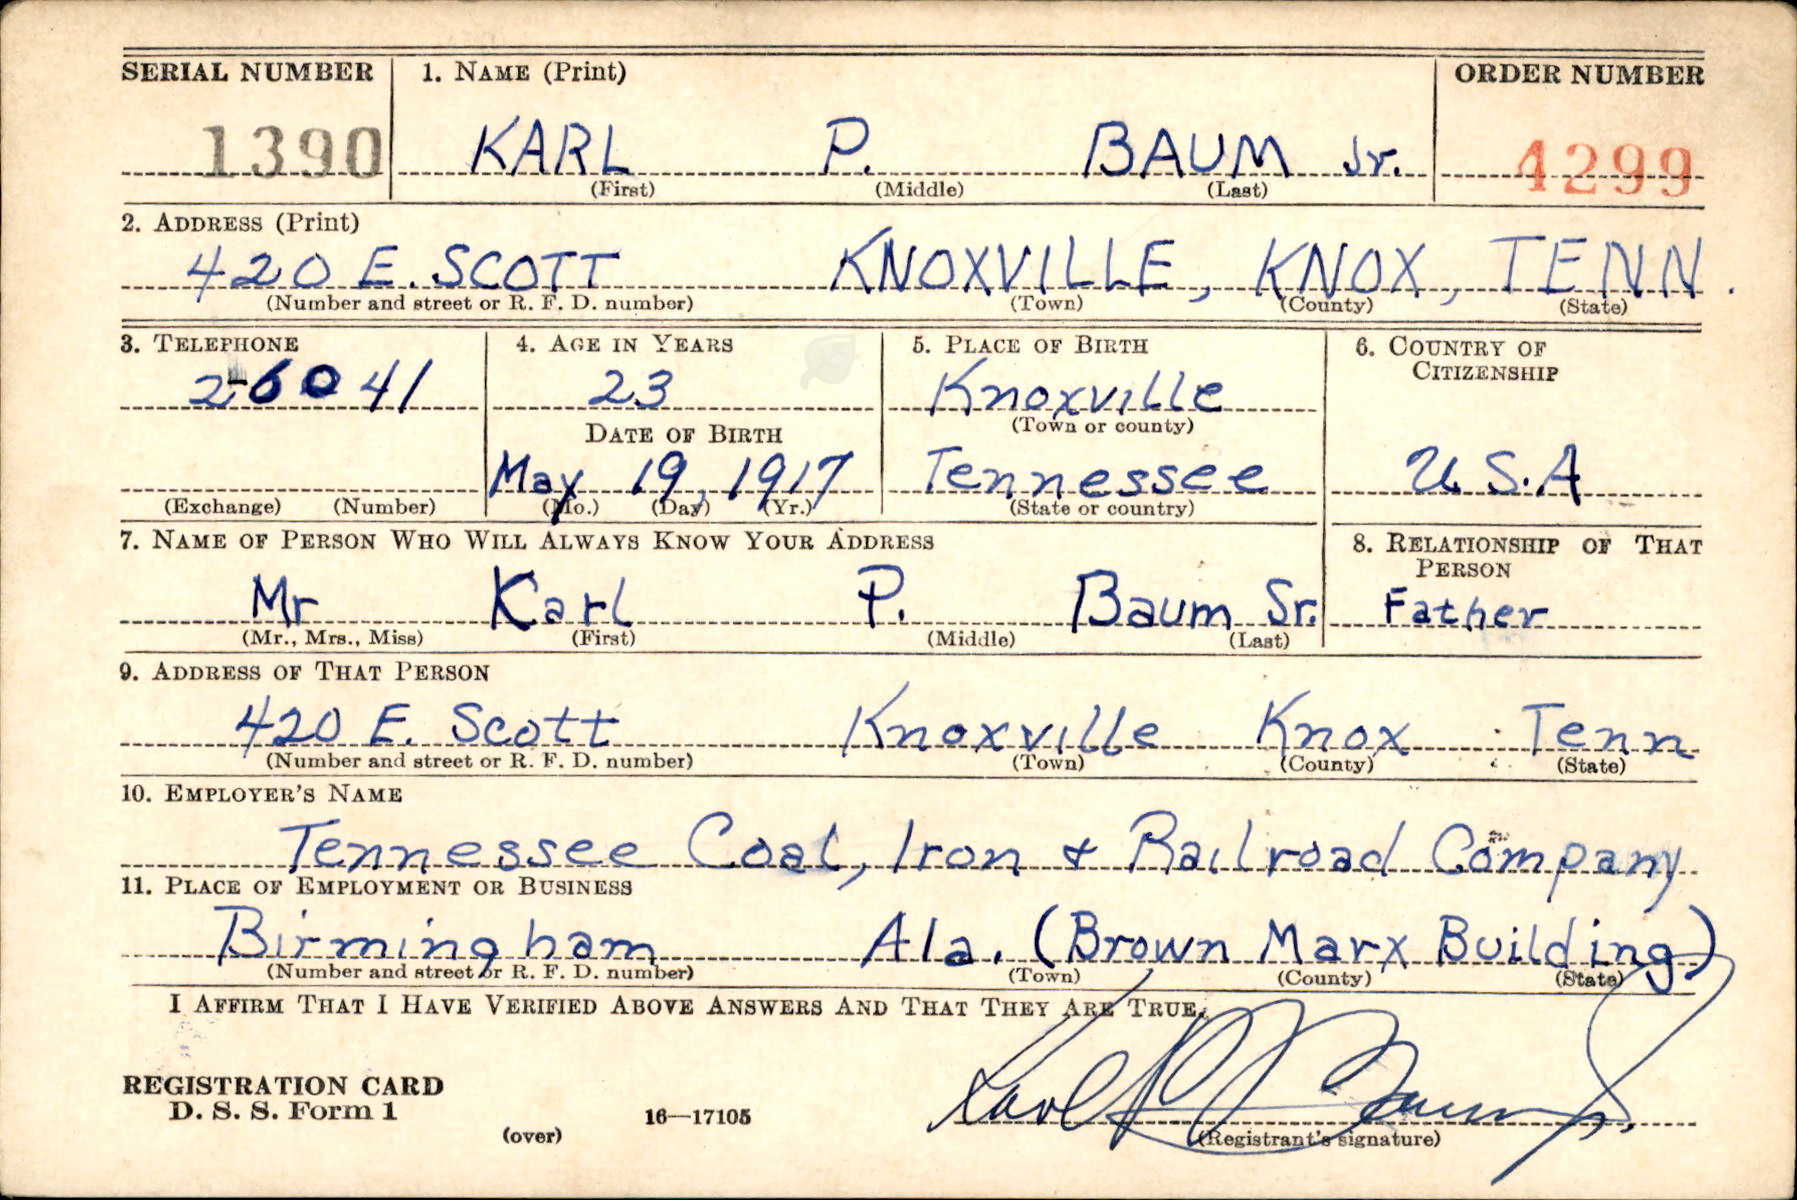 SERIAL NUMBER 1. NAME (Print) ORDER NUMBER
1390 KARL P. BAUM Jr. 4299
(First) (Middle) (Last)
2. ADDRESS (Print)
420 E. SCOTT KNOXVILLE, KNOX, TENN.
(Number and street or R. F. D. number) (Town) (County) (State)
3. TELEPHONE 4. AGE IN YEARS 5. PLACE OF BIRTH 6. COUNTRY OF CITIZENSHIP
2-6041 23 Knoxville
(Town or county)
DATE OF BIRTH
May 19, 1917 Tennessee U.S.A
(Exchange) (Number) (Mo.) (Day) (Yr.) (State or country)
7. NAME OF PERSON WHO WILL ALWAYS KNOW YOUR ADDRESS 8. RELATIONSHIP OF THAT PERSON
Mr Karl P. Baum Sr. Father
(Mr., Mrs., Miss) (First) (Middle) (Last)
9. ADDRESS OF THAT PERSON
420 E. Scott Knoxville Knox Tenn
(Number and street or R. F. D. number) (Town) (County) (State)
10. EMPLOYER'S NAME
Tennessee Coal, Iron & Railroad Company
11. PLACE OF EMPLOYMENT OR BUSINESS
Birmingham Ala. (Brown Marx Building)
(Number and street or R. F. D. number) (Town) (County) (State)
I AFFIRM THAT I HAVE VERIFIED ABOVE ANSWERS AND THAT THEY ARE TRUE.
REGISTRATION CARD
D. S. S. Form 1 16—17105 Karl P. Baum Jr.
(over) (Registrant's signature)